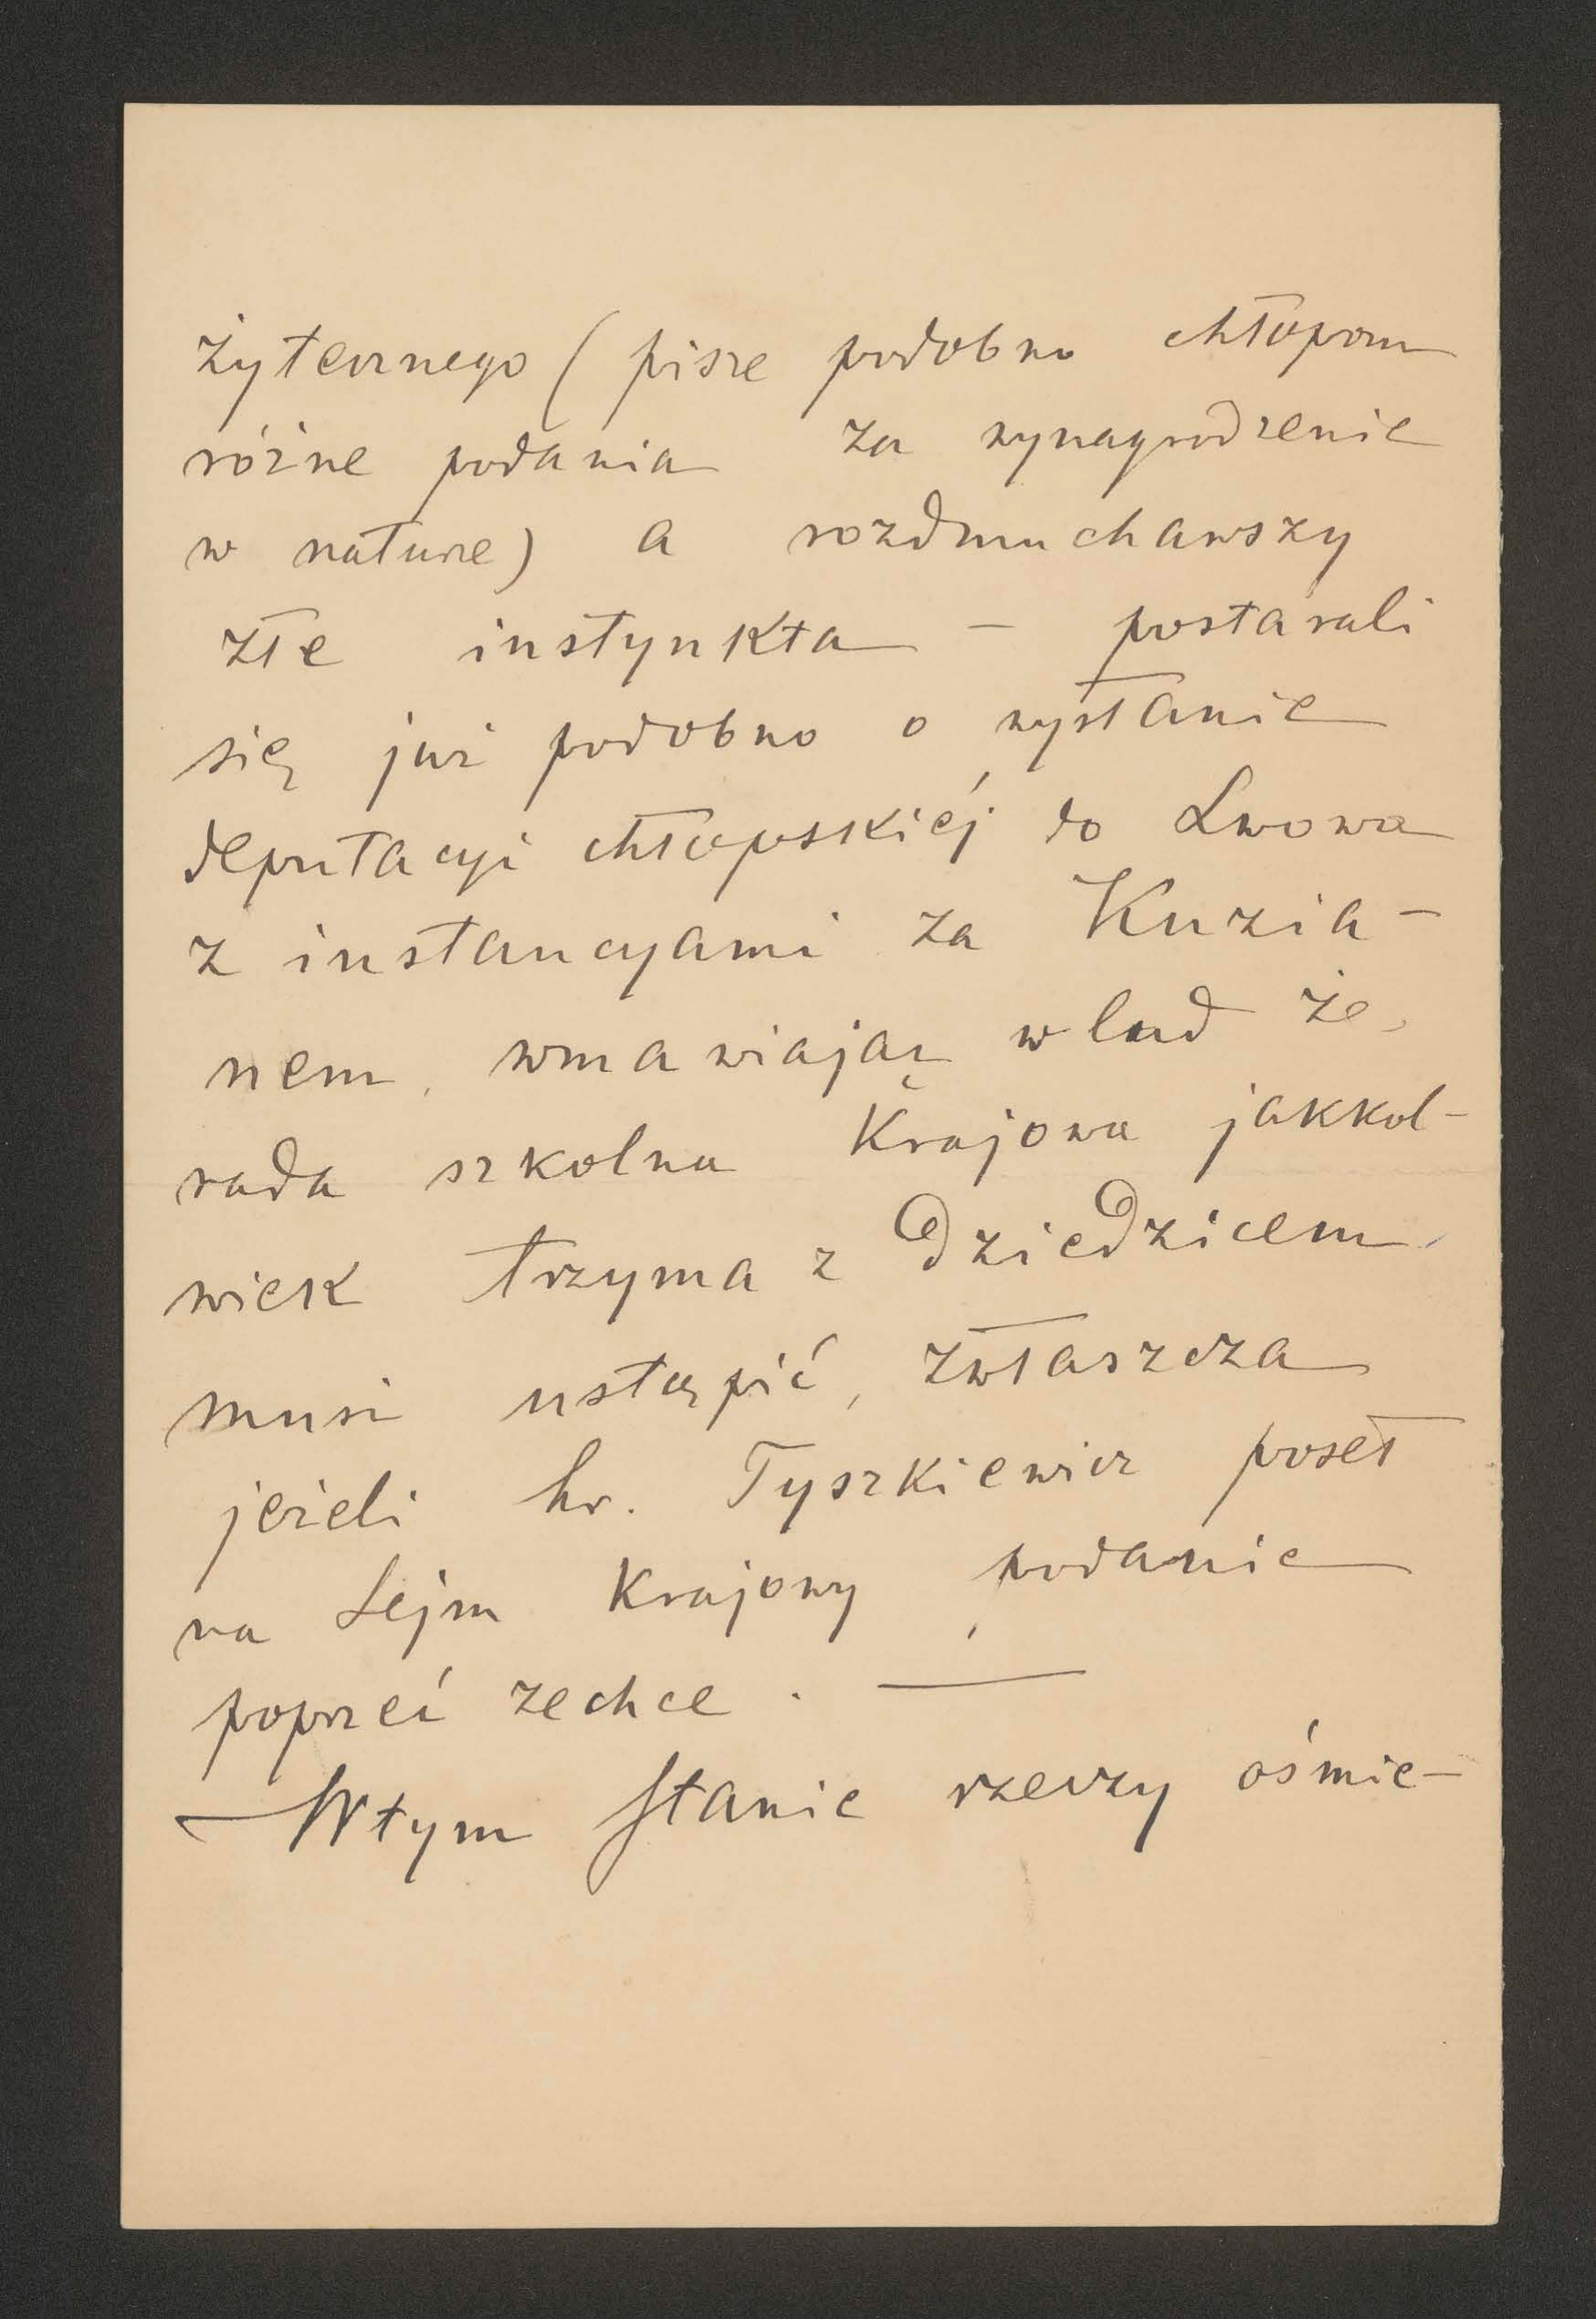 żytecznego (pisze podobno chłopom
różne podania za wynagrodzenie
w naturze) a rozdmuchawszy
złe instynkta — postarali
się już podobno o wysłanie
deputacyi chłopskiéj do Lwowa
z instancyami za Kuzia-
nem, wmawiając w lud że
rada szkolna Krajowa jakkol-
wiek trzyma z Dziedzicem,
musi ustąpić, zwłaszcza
jeżeli hr. Tyszkiewicz poseł
na Sejm Krajowy podanie
poprzeć zechce. —
— W tym Stanie rzeczy ośmie-